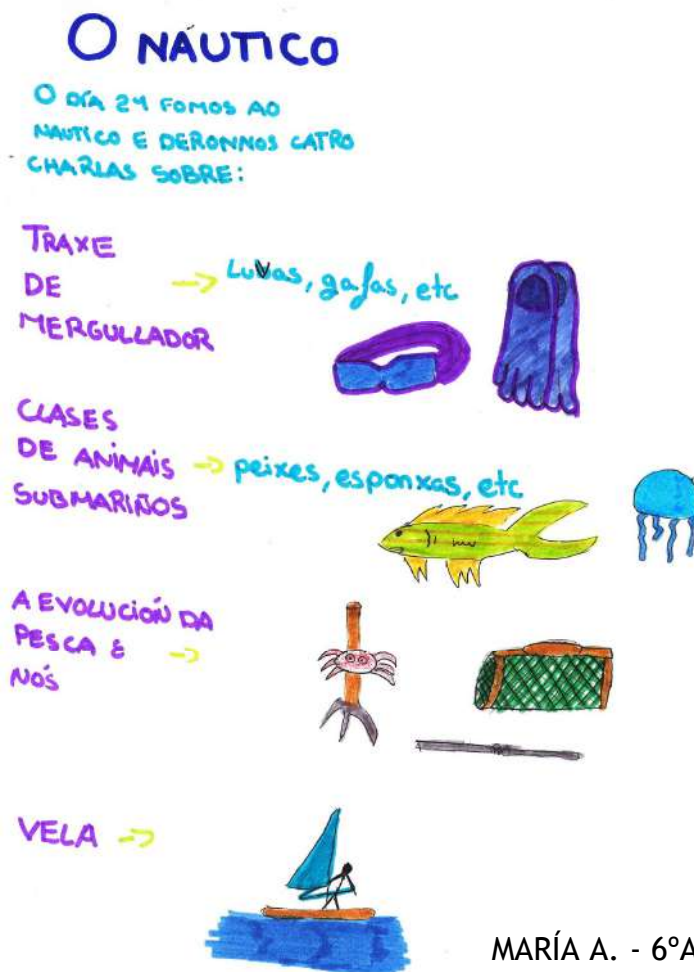 O NÁUTICO
O DÍA 24 FOMOS AO
NAUTICO E DERONNOS CATRO
CHARLAS SOBRE:
TRAXE
DE
MERGULLADOR
-> Luvas, gafas, etc
CLASES
DE ANIMAIS
SUBMARIÑOS
-> peixes, esponxas, etc
A EVOLUCIÓN DA
PESCA E
NÓS
->
VELA ->
MARÍA A. - 6ºA